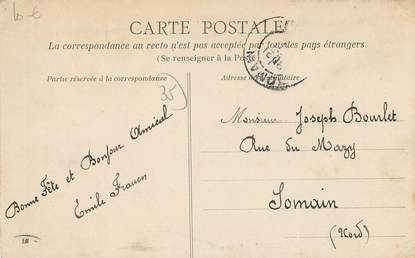 10 €
CARTE POSTALE
La correspondance au recto n'est pas acceptée par tous les pays étrangers
(Se renseigner à la Poste)
Partie réservée à la correspondance
Adresse du destinataire
35
Bonne Fête et Bonjour Amical
Emile
Monsieur Joseph Bourlet
Rue du Mazy
Somain
(Nord)